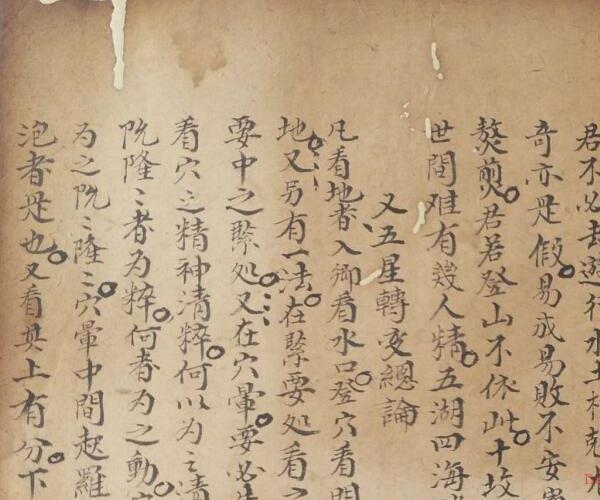 君不必去遊行水土木克
奇亦是假易成易敗不安
熬煎君若登山不依此十坟
世間难有幾人精五湖四海
又五星轉变總論
凡看地者入鄉看水口登穴看明
地又另有一法在緊要処看之
要中之緊処又在穴暈要必
看穴之精神清粹何以为之清
阬隆〻者为粹何者为之動
为之阬〻隆〻穴暈中間起羅
泡者是也又看其上有分下